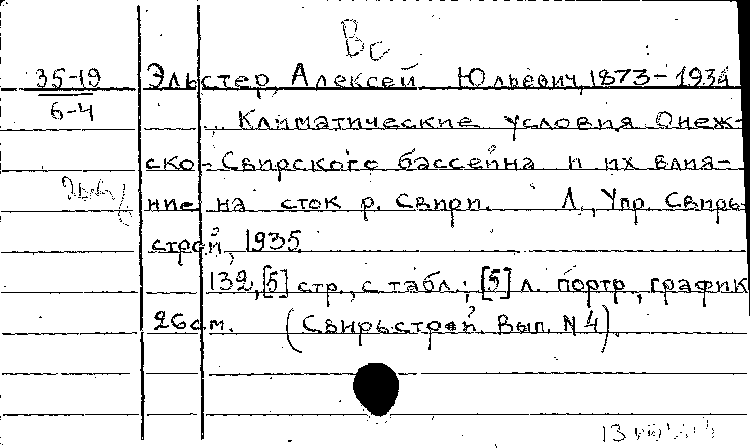 Вс
35-19 Эльстер, Алексей Юльевич, 1873-1934
6-4
Климатические условия Онеж-
ско-Свирского бассейна и их влия-
ние на сток р. Свири. Л., Упр. Свирь-
строй, 1935.
132, [5] стр., с табл.; [5] л. портр., график
26 см. (Свирьстрой. Вып. N 4).
13